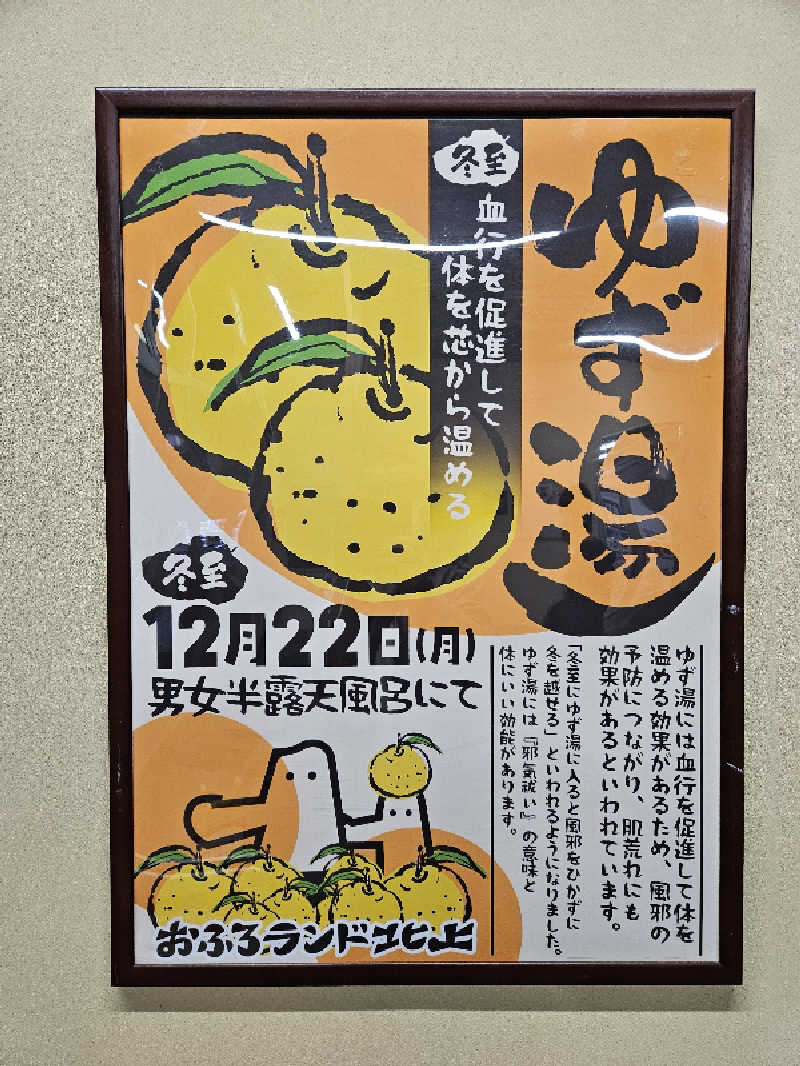 ゆず湯
冬至
血行を促進して
体を芯から温める
冬至
12月22日(月)
男女半露天風呂にて
ゆず湯には血行を促進して体を
温める効果があるため、風邪の
予防につながり、肌荒れにも
効果があるといわれています。
「冬至にゆず湯に入ると風邪をひかずに
冬を越せる」といわれるようになりました。
ゆず湯には『邪気祓い』の意味と
体にいい効能があります。
おふろランド北上